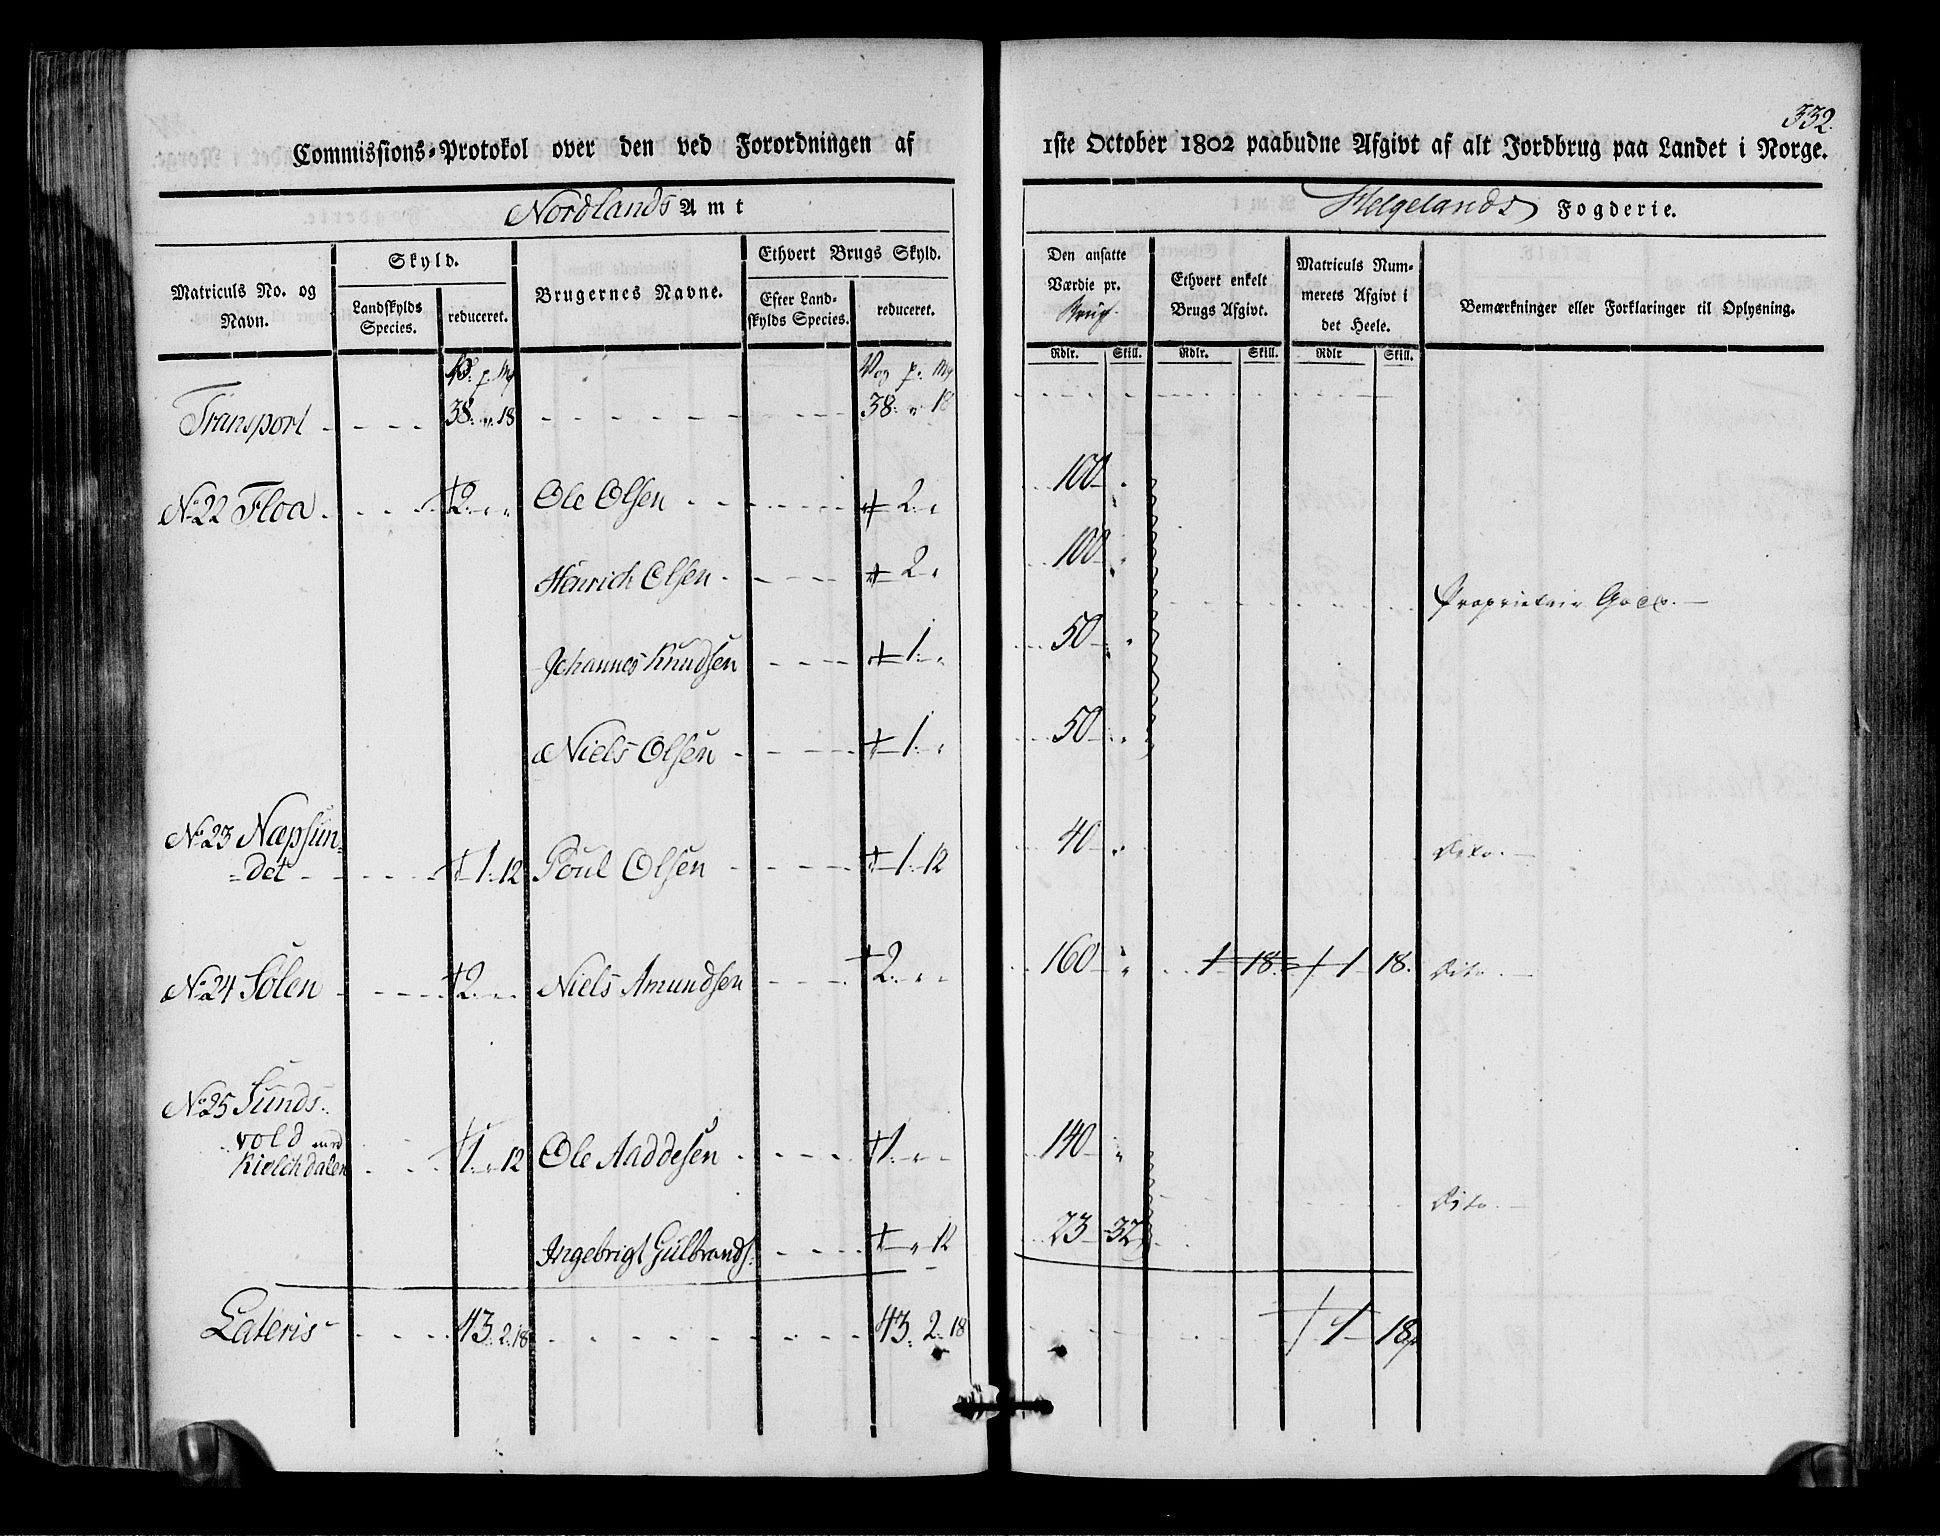 332.
Commissions-Protokol over den ved Forordningen af 1ste October 1802 paabudne Afgivt af alt Jordbrug paa Landet i Norge.
Nordlands Amt Helgelands Fogderie.
Matriculs No. og Navn. Skyld. Landskylds Species. reduceret. Brugernes Navne. Ethvert Brugs Skyld. Efter Landskylds Species. reduceret. Den ansatte Værdie pr. Brug. Ethvert enkelt Brugs Afgivt. Matriculs Nummerets Afgivt i det Heele. Bemærkninger eller Forklaringer til Oplysning.
Rdlr. Skill. Rdlr. Skill. Rdlr Skill.
p. Mk Vog p. Mk
Transport 38. „ 18 38. „ 18
No. 22 Floa 2. „ „ Ole Olsen 2. „ 100 „
Henrich Olsen 2 „ 100 „ Proprietair Gods.
Johannes Knudsen 1. „ 50 „
Niels Olsen 1. „ 50 „
No. 23 Næpsun=
=det 1. 12 Poul Olsen 1. 12 40 „ Dito.
No. 24 Sølen 2. „ „ Niels Amundsen 2. „ „ 160 „ 1 18 1 18. Dito.
No. 25 Sunds
vold med
Kielchdalen 1. „ 12 Ole Aaddesen 1 „ „ 140 „
Dito.
Ingebrigt Gulbrands. „ 12 23 32
Lateris 43. 2. 18 43. 2 18 1 18